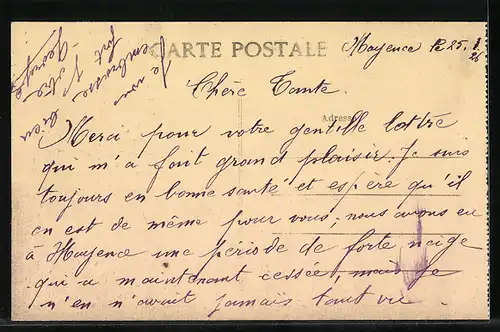 CARTE POSTALE
Mayence le 25. 1. 26
Chère Tante.
Adresse
Merci pour votre gentille lettre
qui m'a fait grand plaisir. Je suis
toujours en bonne santé et espère qu'il
en est de même pour vous; nous avons eu
à Mayence une période de forte neige
qui a maintenant cessée, mais je
n'en n'avait jamais tant vu.
Je vous
embrasse
fort
Votre
neveu